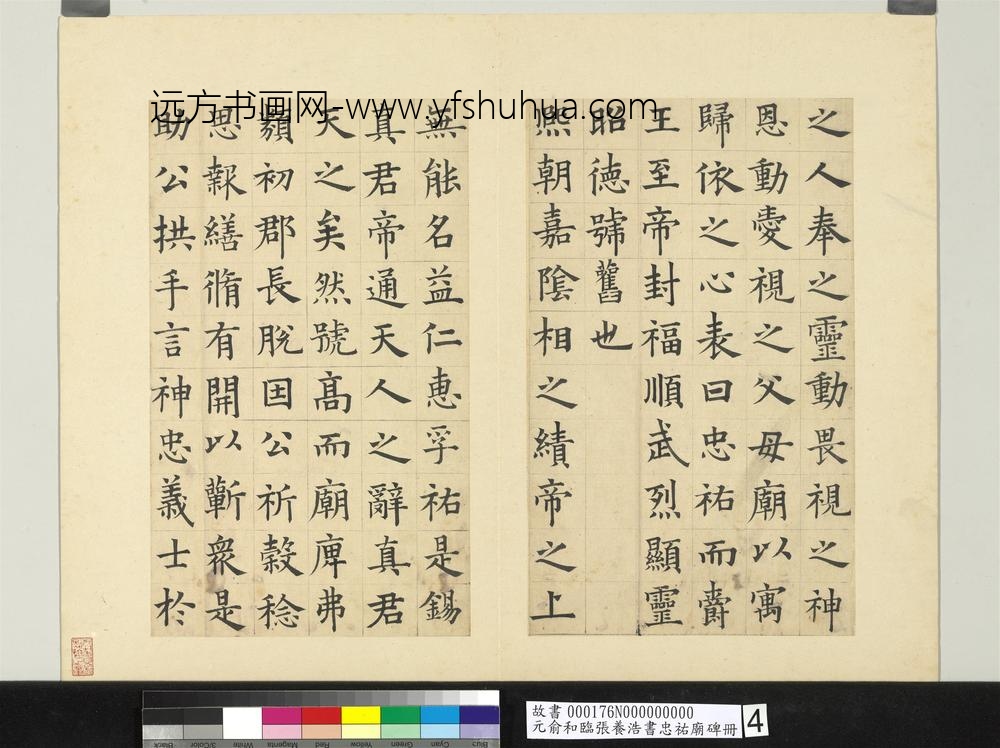 远方书画网-www.yfshuhua.com
之人奉之靈動畏視之神
恩動愛視之父母廟以寓
歸依之心表曰忠祐而爵
王至帝封福順武烈顯靈
昭德號舊也
熙朝嘉陰相之績帝之上
無能名益仁惠孚祐是錫
真君帝通天人之辭真君
天之矣然號高而廟庳弗
纇初郡長脫因公祈穀稔
思報繕脩有開以蘄衆是
助公拱手言神忠義士於
故書 000176N000000000
元俞和臨張養浩書忠祐廟碑冊
4
Black
3/Color
White
Magenta
Red
Yellow
Green
Cyan
Blue